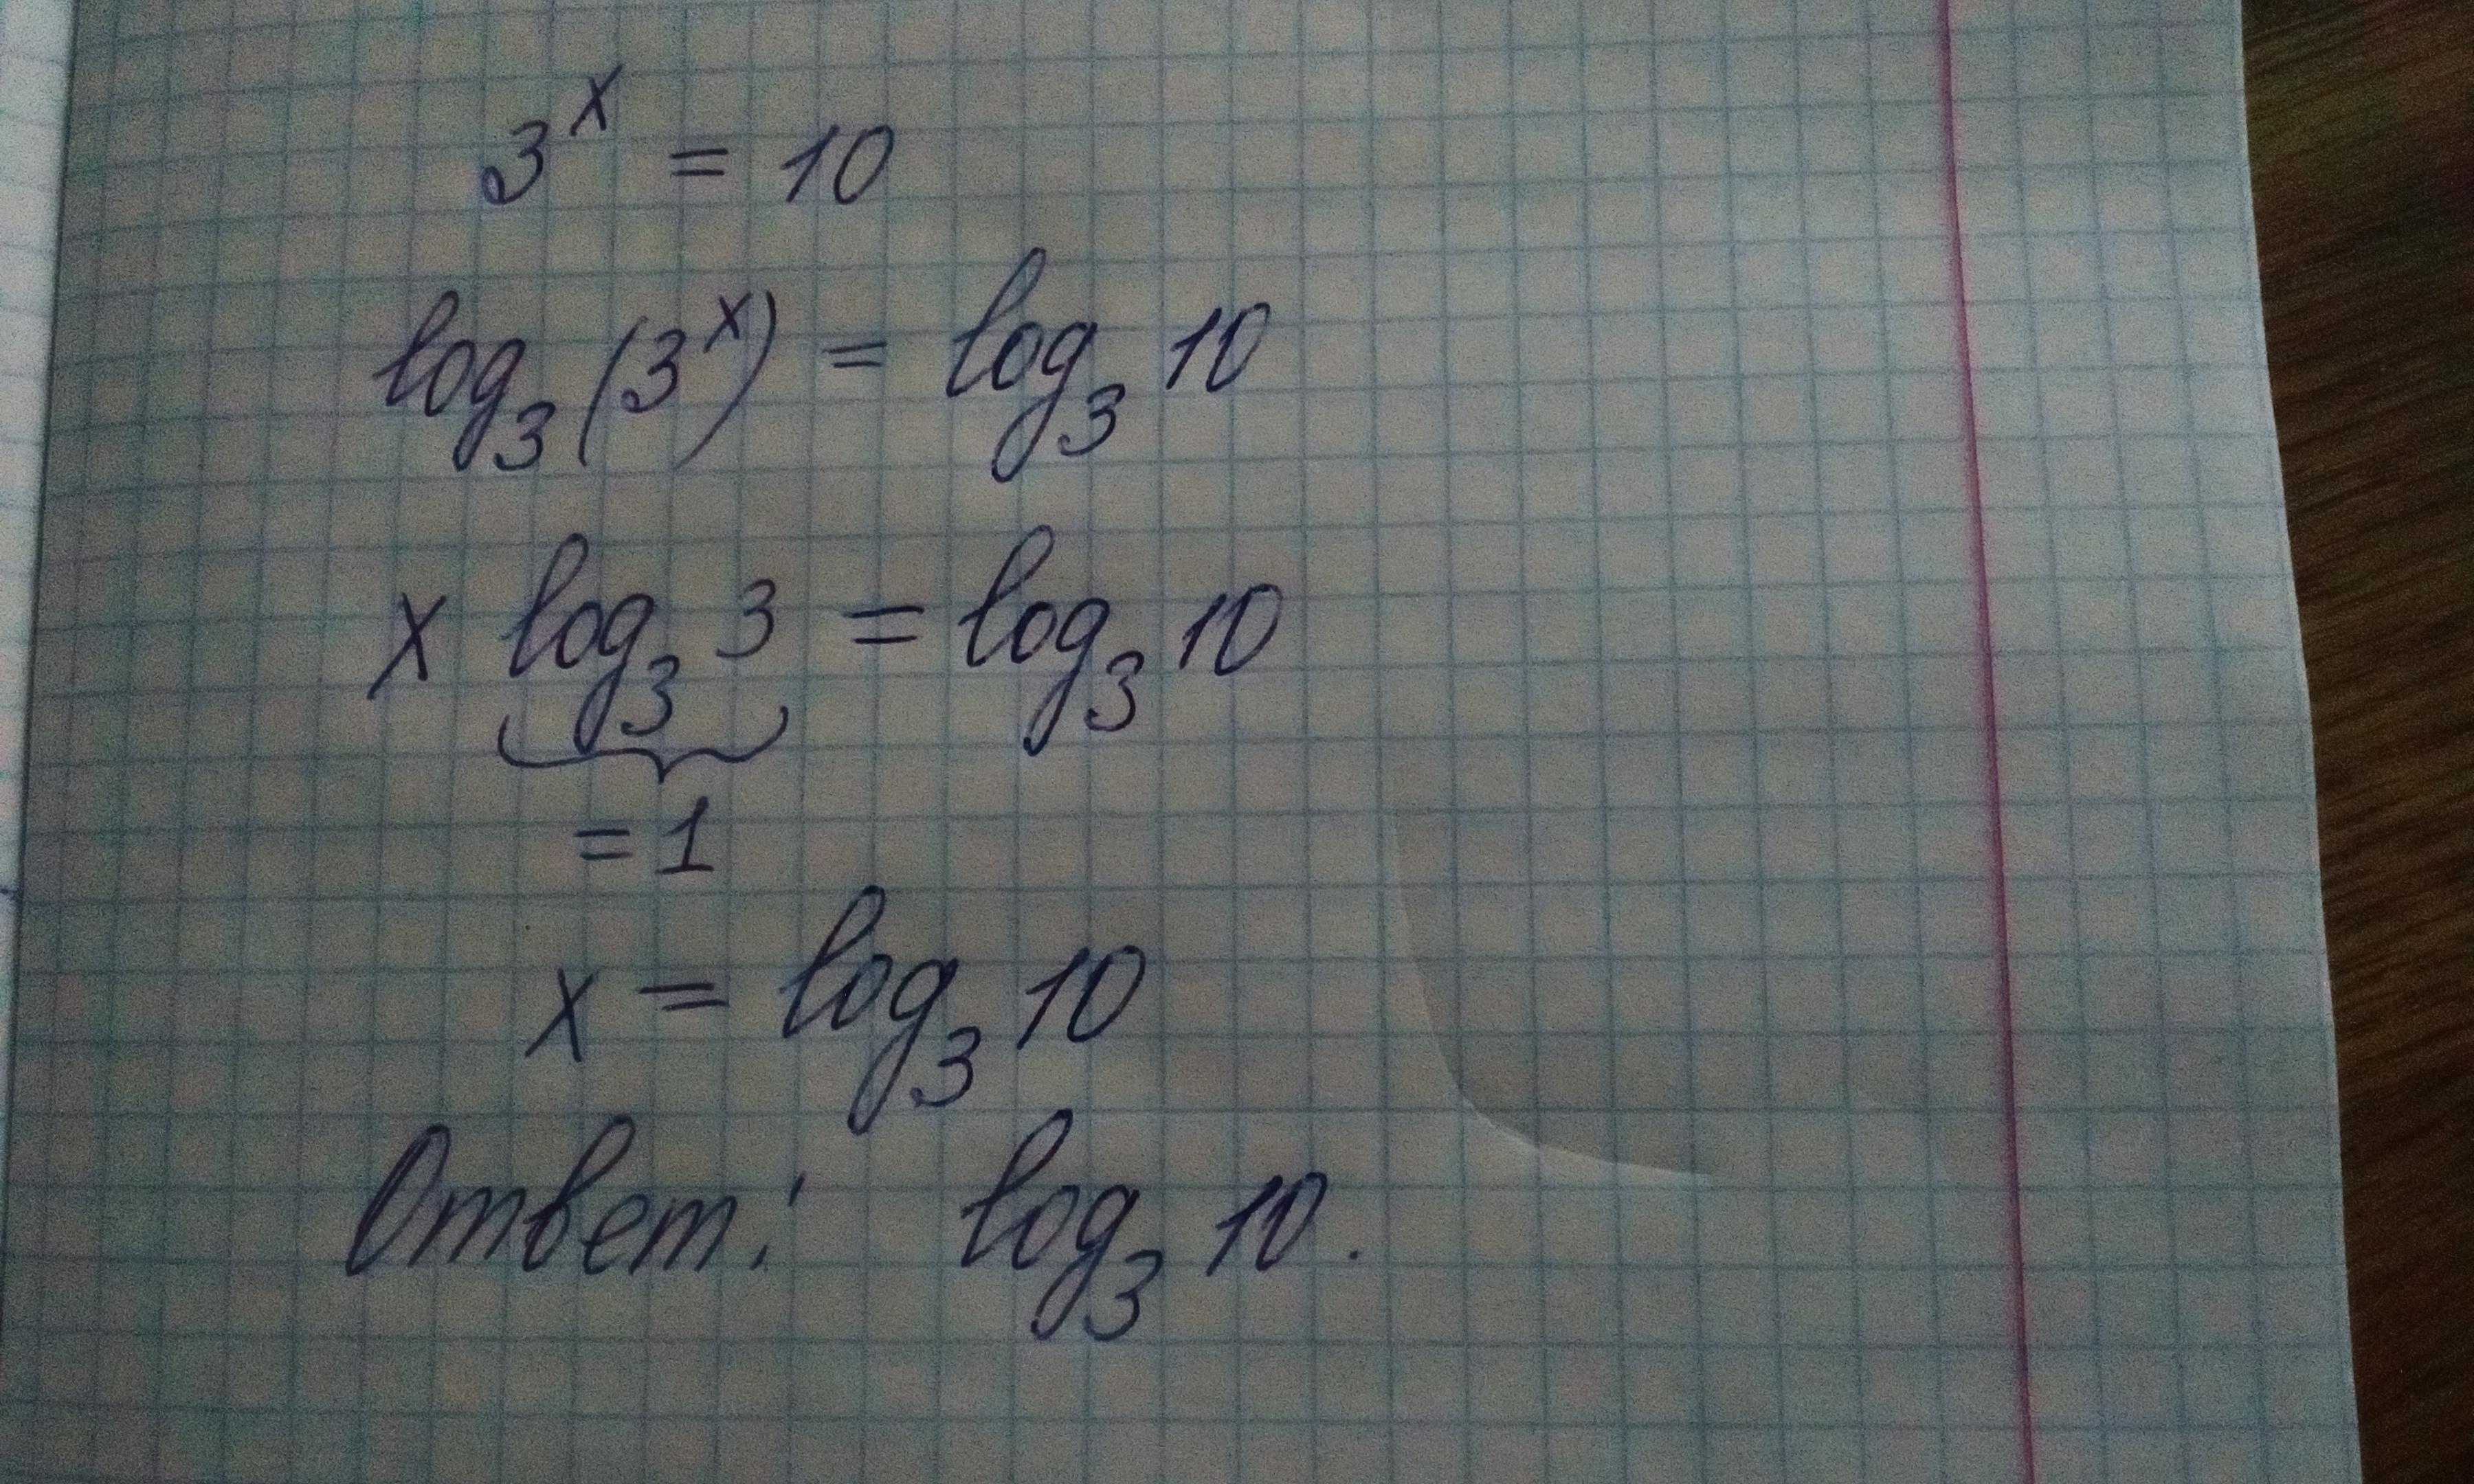 3^x = 10
log₃(3^x) = log₃ 10
x log₃ 3 = log₃ 10
= 1
x = log₃ 10
Ответ: log₃ 10.